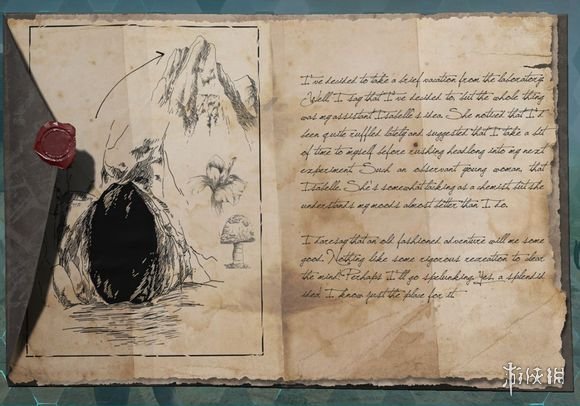 I've decided to take a brief vacation from the laboratory.
Well, I say that I've decided to, but the whole thing
was my assistant Isabelle's idea. She noticed that I'd
been quite ruffled lately and suggested that I take a bit
of time to myself before rushing headlong into my next
experiment. Such an observant young woman, that
Isabelle. She's somewhat lacking as a chemist, but she
understands my moods almost better than I do.
I daresay that an old fashioned adventure will me some
good. Nothing like some rigorous recreation to clear
the mind! Perhaps I'll go spelunking. Yes, a splendid
idea! I know just the place for it.
游侠网